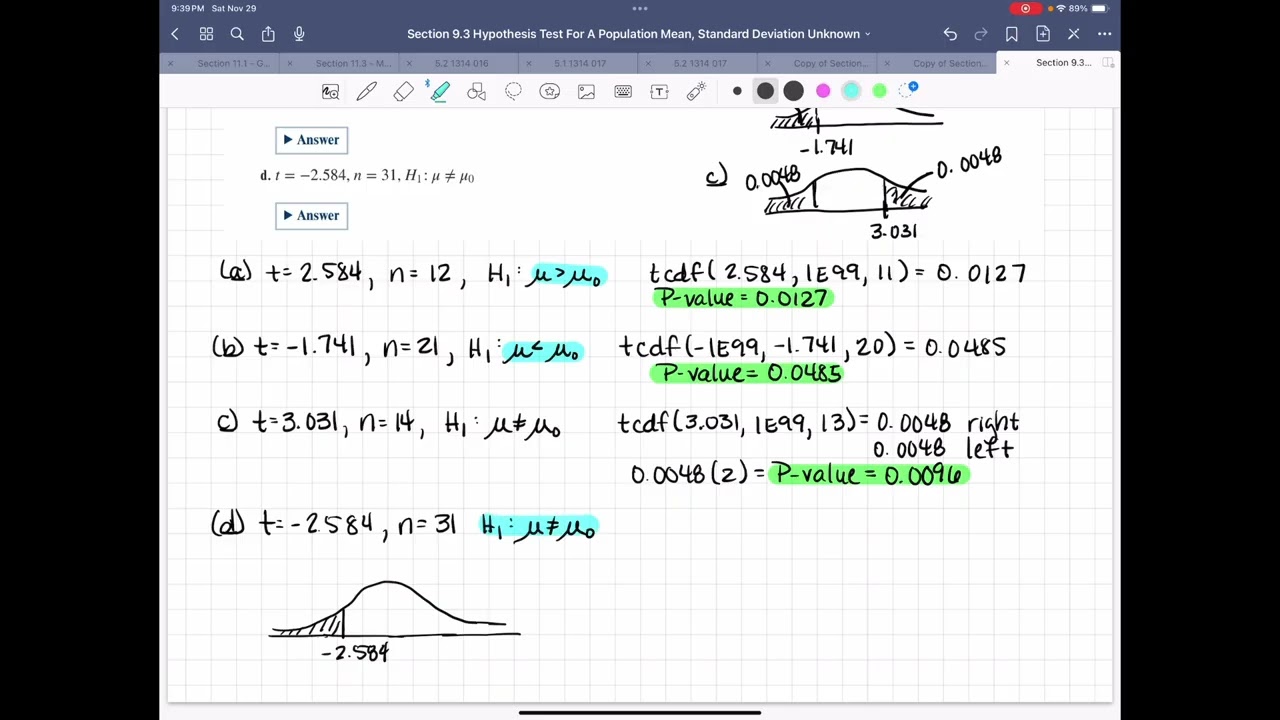 9:39 PM Sat Nov 29
89%
Section 9.3 Hypothesis Test For A Population Mean, Standard Deviation Unknown
Section 11.1 - G...
Section 11.3 - M...
5.2 1314 016
5.1 1314 017
5.2 1314 017
Copy of Section...
Copy of Section...
Section 9.3...
▶ Answer
-1.741
d. t = −2.584, n = 31, H₁: μ ≠ μ₀
c) 0.0048 0.0048
3.031
▶ Answer
(a) t = 2.584, n = 12, H₁: μ > μ₀ tcdf(2.584, 1E99, 11) = 0.0127
P-value = 0.0127
(b) t = -1.741, n = 21, H₁: μ < μ₀ tcdf(-1E99, -1.741, 20) = 0.0485
P-value = 0.0485
c) t = 3.031, n = 14, H₁: μ ≠ μ₀ tcdf(3.031, 1E99, 13) = 0.0048 right
0.0048 left
0.0048(2) = P-value = 0.0096
(d) t = -2.584, n = 31 H₁: μ ≠ μ₀
-2.584